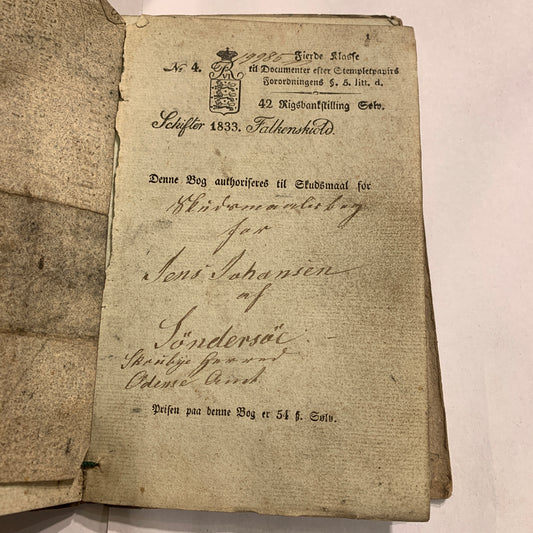 1
19985
Fierde Klasse
No 4. til Documenter efter Stempletpapirs
Forordningens §. 5. litt. d.
42 Rigsbankskilling Sølv.
Schifter 1833. Falkenskiold.
Denne Bog authoriseres til Skudsmaal for
Skudsmaalsbog
for
Jens Johansen
af
Söndersöe
Skoubye Herred
Odense Amt
Prisen paa denne Bog er 54 ß. Sølv.